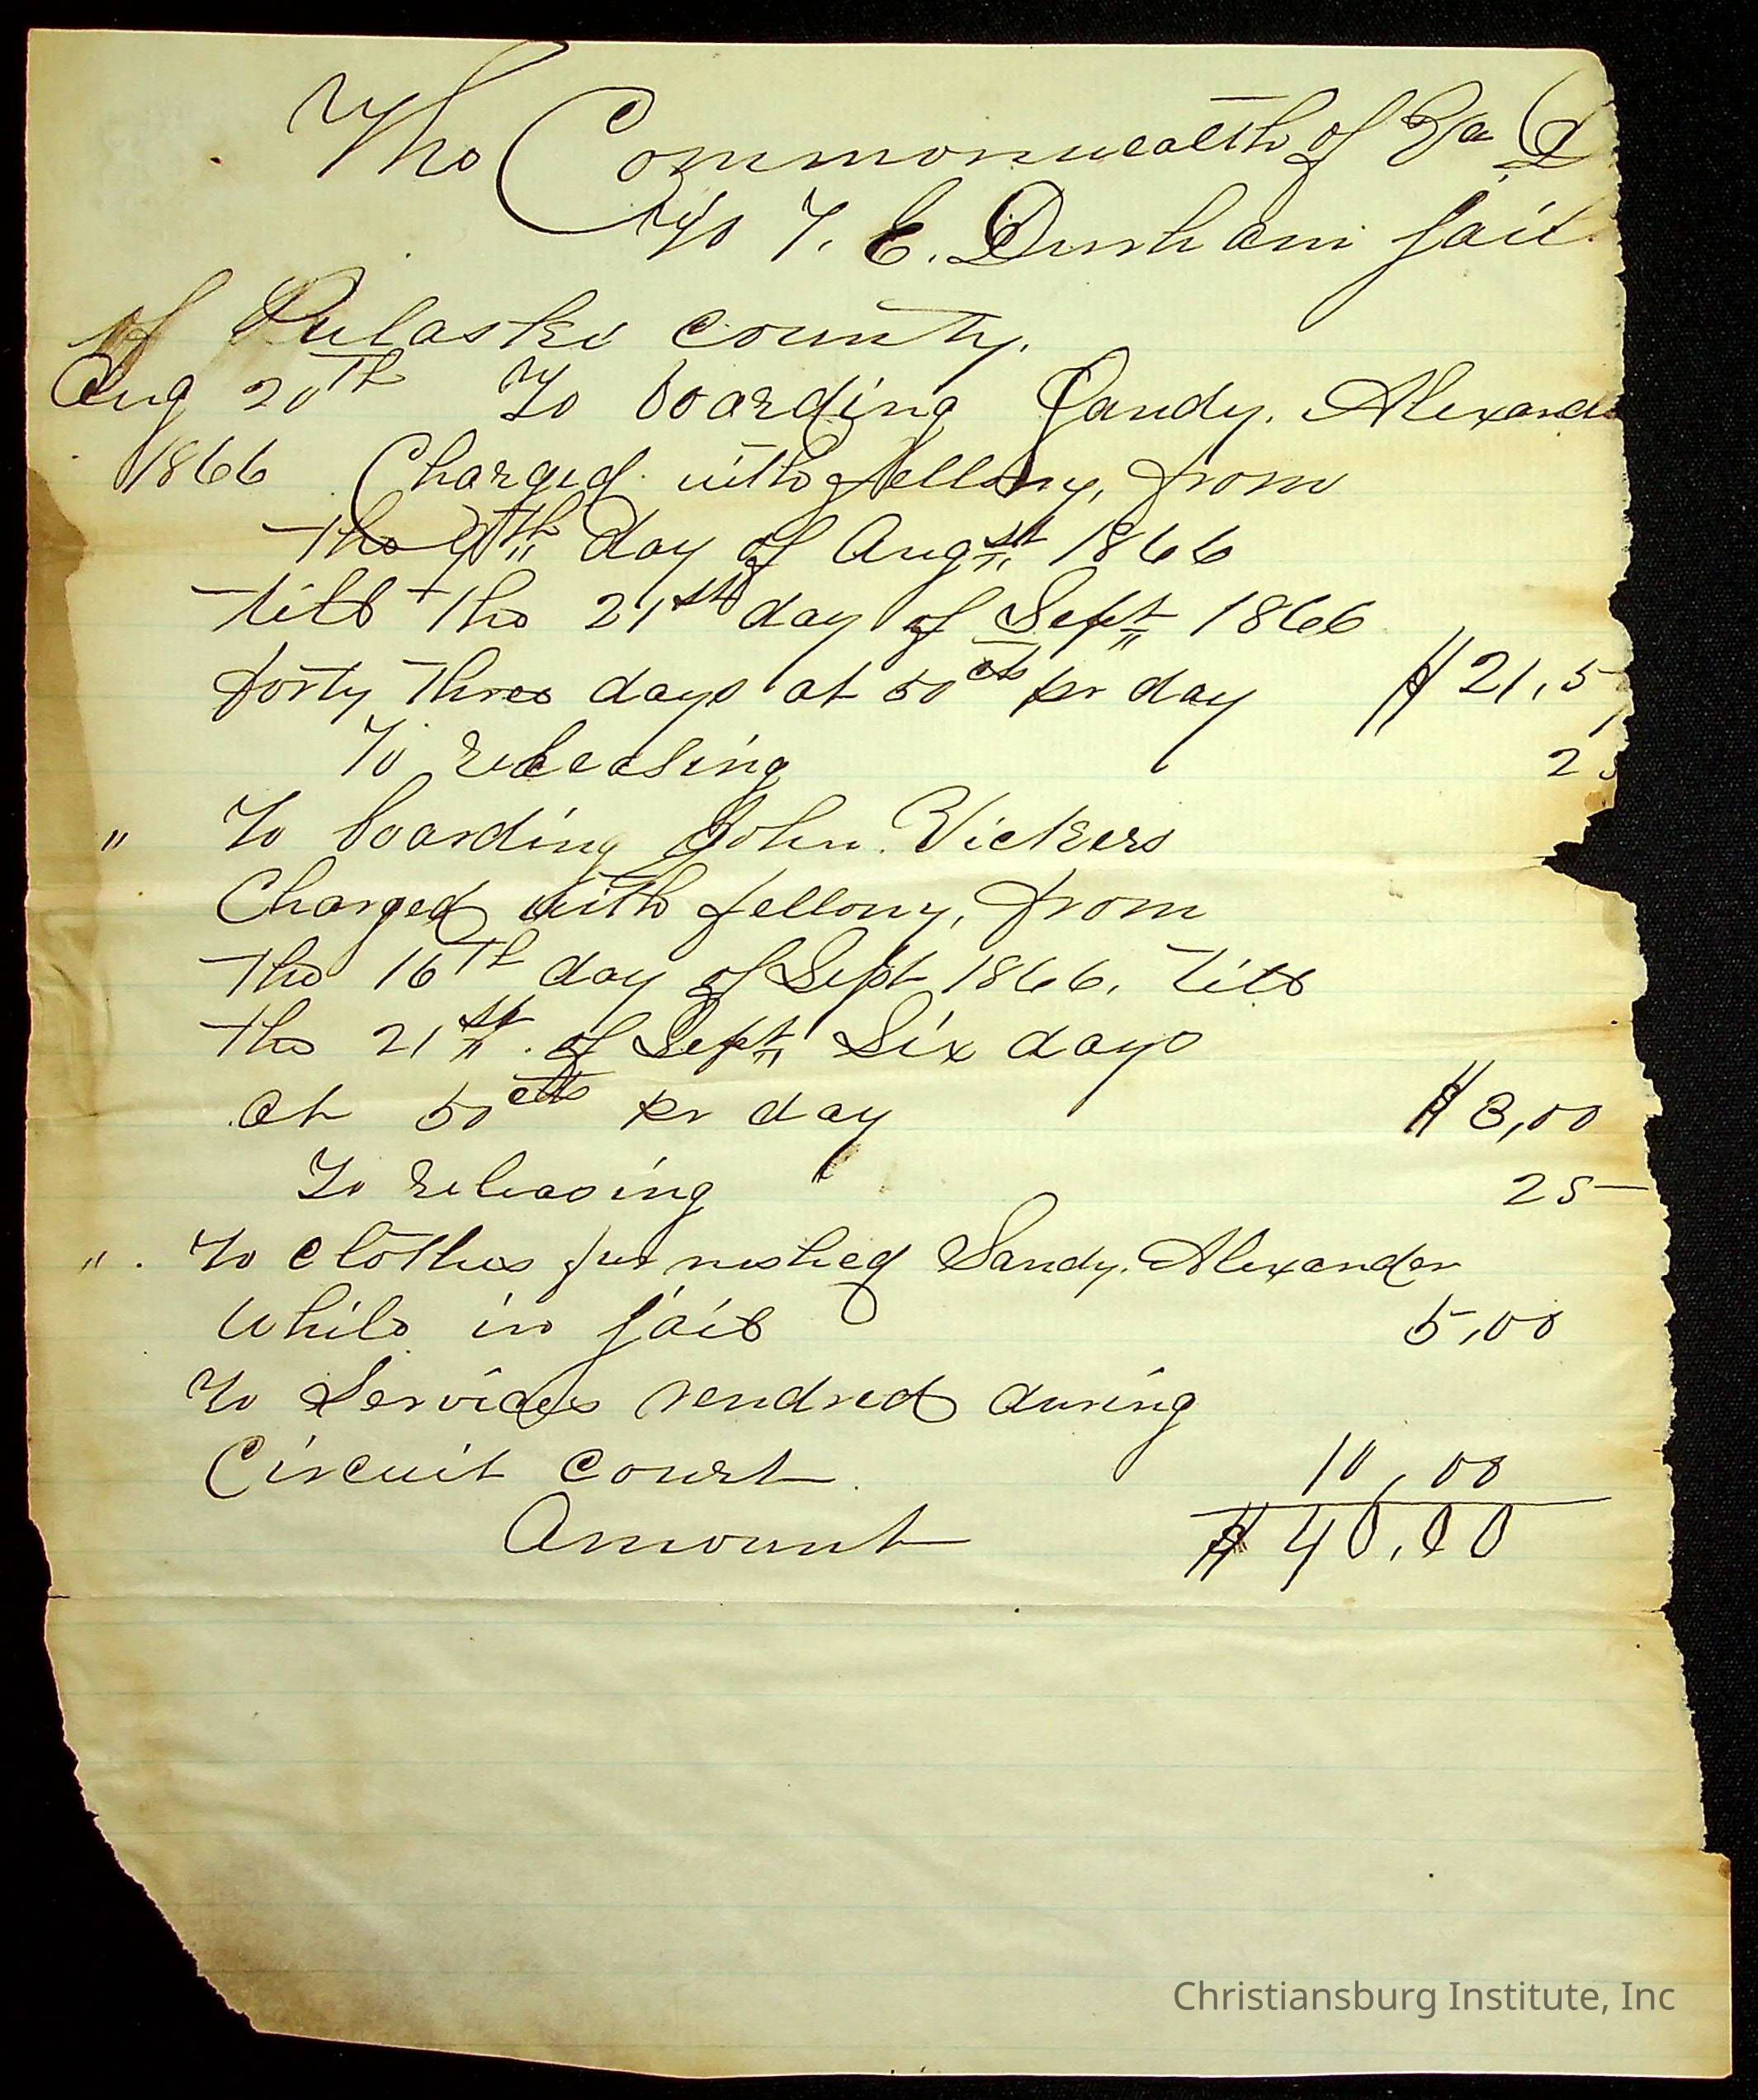 The Commonwealth of Va D
To T. E. Durham Jail
of Pulaski county.
Aug 20th To boarding Sandy. Alexand
1866 Charged with fellony, from
the 9th day of Augst 1866
till the 21st day of Sept 1866
forty three days at 50cts pr day $21,5
To releasing 25
" To boarding John. Vickers
Charged with fellony, from
the 16th day of Sept 1866. till
the 21st of Sept Six days
at 50cts pr day $3,00
To releasing 25
" To clothes furnished Sandy. Alexander
while in jail 5,00
To Services rendred during
Circuit court 10,00
Amount $40,00
Christiansburg Institute, Inc